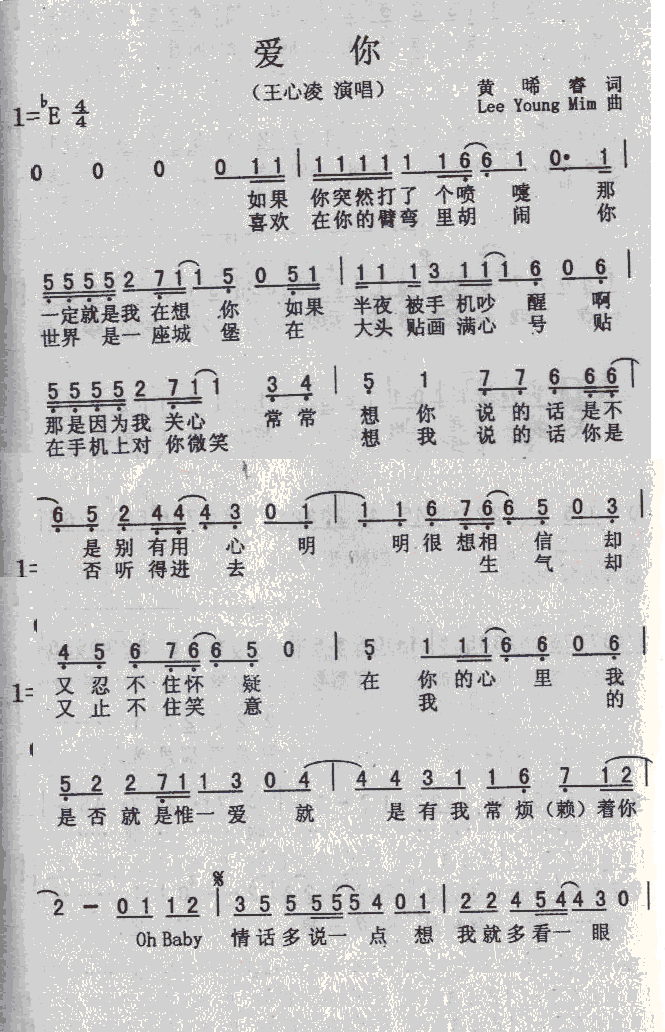 爱 你
（王心凌 演唱）
黄 晞 睿 词
1=♭E 4/4
Lee Young Mim 曲
0 0 0 0 1 1 | 1 1 1 1 1 1 6 6 1 0· 1 |
如果 你突然打了 个喷 嚏 那
喜欢 在你的臂弯 里胡 闹 你
5 5 5 5 2 7 1 1 5 0 5 1 | 1 1 1 3 1 1 1 6 0 6 |
一定就是我 在想 你 如果 半夜 被手 机吵 醒 啊
世界 是一 座城 堡 在 大头 贴画 满心 号 贴
5 5 5 5 2 7 1 1 3 4 | 5 1 7 7 6 6 6
那是因为我 关心 常 常 想 你 说 的 话 是不
在手机上对 你微笑 想 我 说 的 话 你是
6 5 2 4 4 4 3 0 1 | 1 1 6 7 6 6 5 0 3 |
是 别 有用 心 明 明 很 想相 信 却
1= 否 听 得进 去 生 气 却
4 5 6 7 6 6 5 0 | 5 1 1 1 6 6 0 6 |
又 忍 不 住怀 疑 在 你 的心 里 我
1= 又 止 不 住笑 意 我 的
5 2 2 7 1 1 3 0 4 | 4 4 3 1 1 6 7 1 2
是 否 就 是惟一 爱 就 是 有 我 常 烦（赖）着你
2 – 0 1 1 2 | 𝄋 3 5 5 5 5 5 4 0 1 | 2 2 4 5 4 4 3 0 |
Oh Baby 情 话 多 说一 点 想 我 就 多 看一 眼